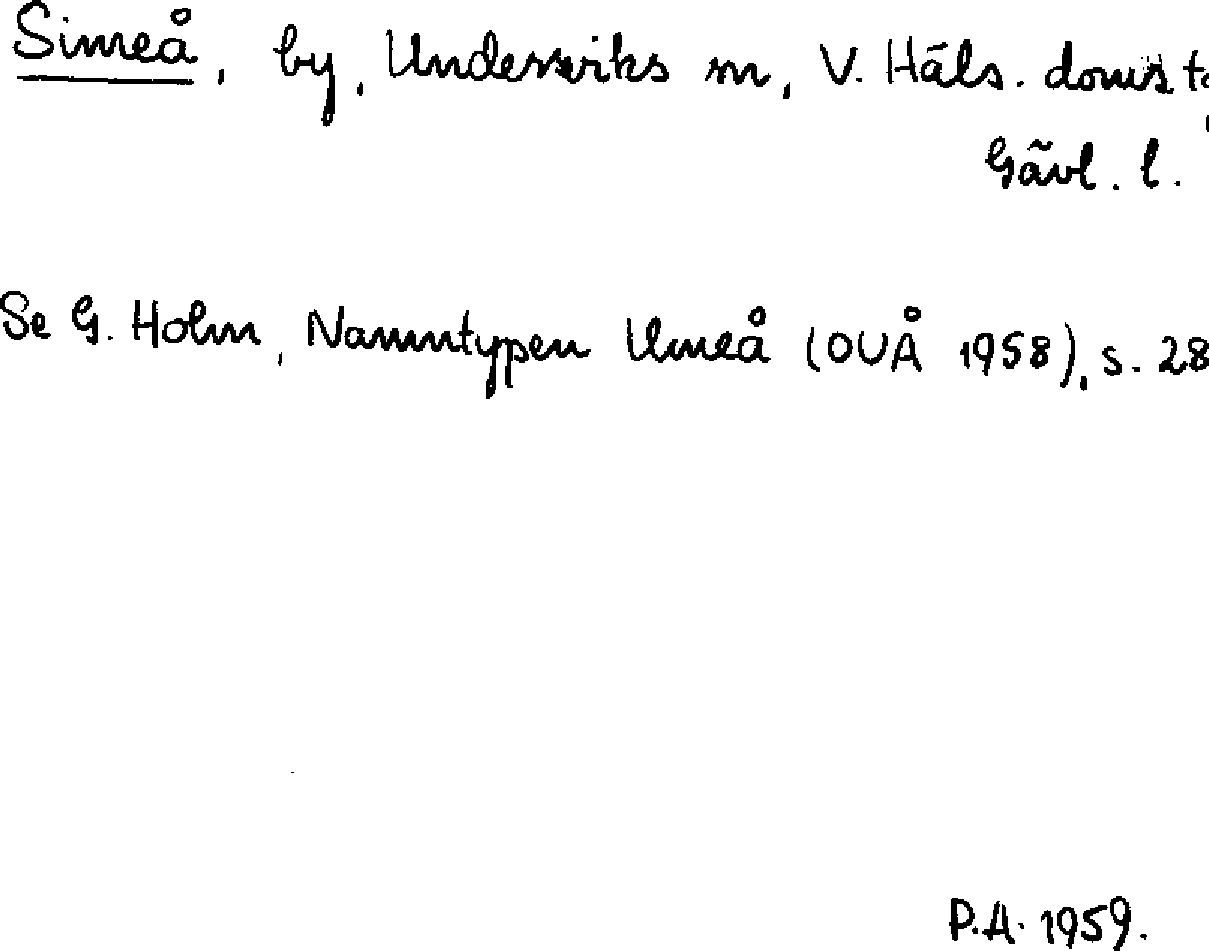 Simeå, by, Undersviks sn, V. Häls. doms
Gävl. l.
Se G. Holm, Namntypen Umeå (OUÅ 1958), s. 28
P.A. 1959.